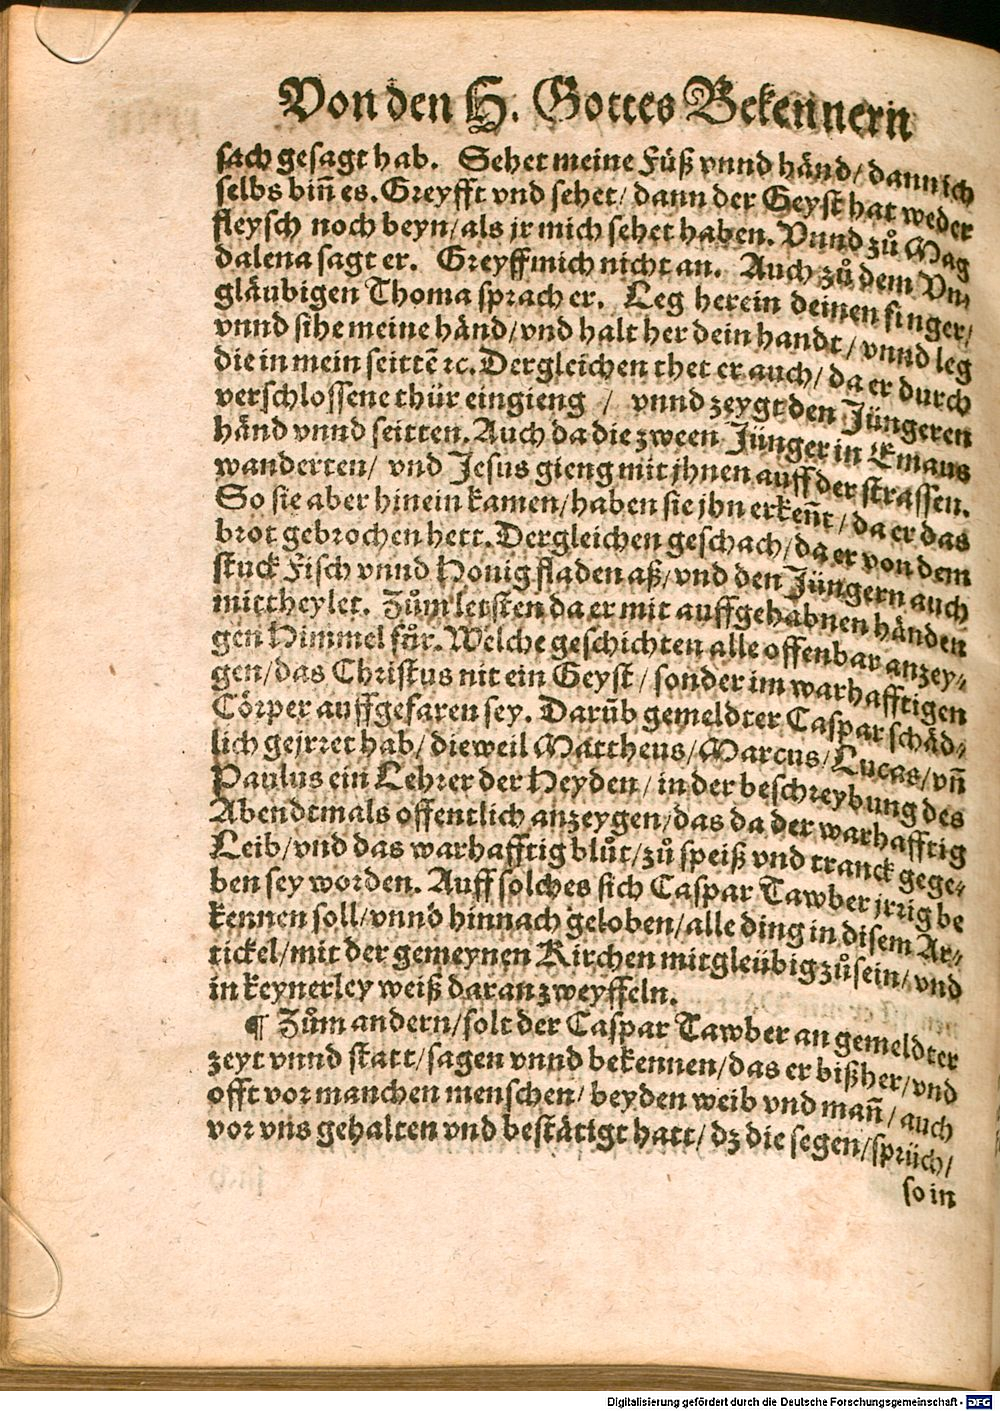 Von den H. Gottes Bekennern
sach gesagt hab. Sehet meine Füß vnnd händ/ dann ich
selbs biñ es. Greyfft vnd sehet/ dann der Geyst hat weder
fleysch noch beyn/ als jr mich sehet haben. Vnnd zů Mag
dalena sagt er. Greyff mich nicht an. Auch zů dem Vn⸗
gläubigen Thoma sprach er. Leg herein deinen finger/
vnnd sihe meine händ/ vnd halt her dein handt/ vnnd leg
die in mein seittē ꝛc. Dergleichen thet er auch/ da er durch
verschlossene thür eingieng / vnnd zeygt den Jüngeren
händ vnnd seitten. Auch da die zween Jünger in Emaus
wanderten/ vnd Jesus gieng mit jhnen auff der strassen.
So sie aber hinein kamen/ haben sie jhn erkeñt/ da er das
brot gebrochen hett. Dergleichen geschach/ da er von dem
stuck Fisch vnnd Honigfladen aß/ vnd den Jüngern auch
mittheylet. Zům letsten da er mit auffgehabnen händen
gen Himmel fůr. Welche geschichten alle offenbar anzey⸗
gen/ das Christus nit ein Geyst/ sonder im warhafftigen
Cörper auffgefaren sey. Darūb gemeldter Caspar schäd⸗
lich gejrret hab/ dieweil Mattheus/ Marcus/ Lucas/ vñ
Paulus ein Lehrer der Heyden/ in der beschreybung des
Abendtmals offentlich anzeygen/ das da der warhafftig
Leib/ vnd das warhafftig blůt/ zů speiß vnd tranck gege⸗
ben sey worden. Auff solches sich Caspar Tawber jrrig be
kennen soll/ vnnd hinnach geloben/ alle ding in disem Ar⸗
tickel/ mit der gemeynen Kirchen mitgleübig zů sein/ vnd
in keynerley weiß daran zweyffeln.
¶ Zům andern/ solt der Caspar Tawber an gemeldter
zeyt vnnd statt/ sagen vnnd bekennen/ das er bißher/ vnd
offt vor manchen menschen/ beyden weib vnd mañ/ auch
vor vns gehalten vnd bestätigt hatt/ dz die segen/ sprüch/
so in
Digitalisierung gefördert durch die Deutsche Forschungsgemeinschaft - DFG